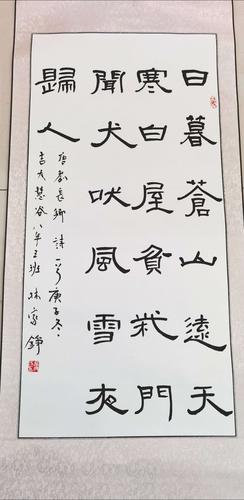 日暮蒼山遠天
寒白屋貧柴門
聞犬吠風雪夜
歸人
唐劉長卿詩一首庚子冬
吉大慧谷八年三班